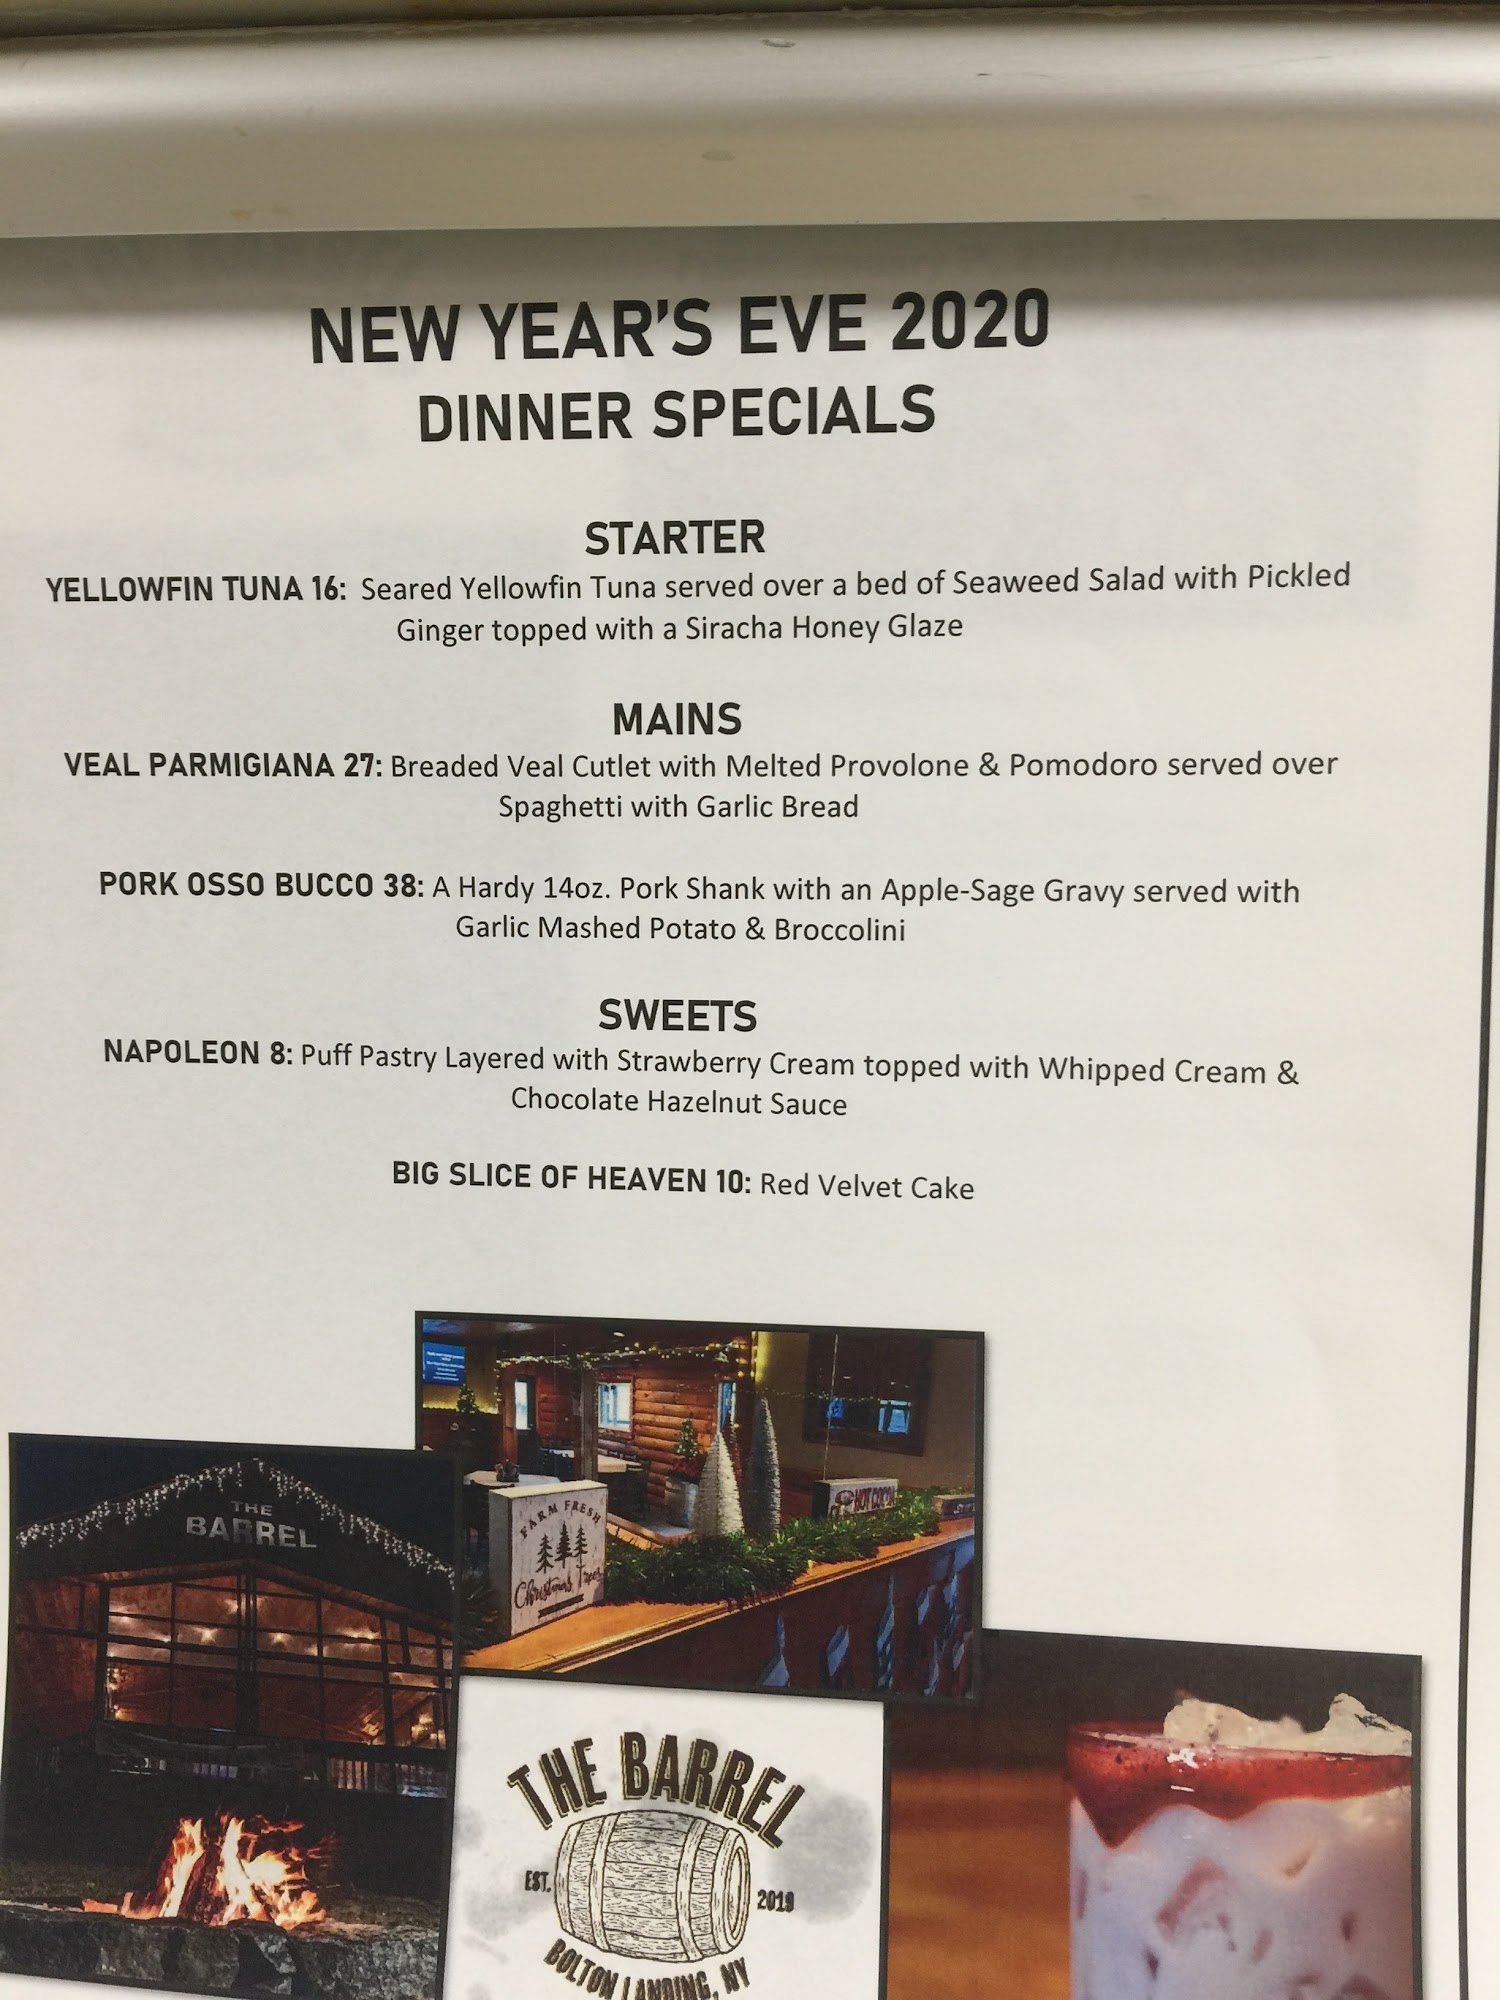 NEW YEAR'S EVE 2020
DINNER SPECIALS
STARTER
YELLOWFIN TUNA 16: Seared Yellowfin Tuna served over a bed of Seaweed Salad with Pickled
Ginger topped with a Siracha Honey Glaze
MAINS
VEAL PARMIGIANA 27: Breaded Veal Cutlet with Melted Provolone & Pomodoro served over
Spaghetti with Garlic Bread
PORK OSSO BUCCO 38: A Hardy 14oz. Pork Shank with an Apple-Sage Gravy served with
Garlic Mashed Potato & Broccolini
SWEETS
NAPOLEON 8: Puff Pastry Layered with Strawberry Cream topped with Whipped Cream &
Chocolate Hazelnut Sauce
BIG SLICE OF HEAVEN 10: Red Velvet Cake
THE
BARREL
FARM FRESH
Christmas Trees
HOT COCOA
THE BARREL
EST. 2019
BOLTON LANDING, NY